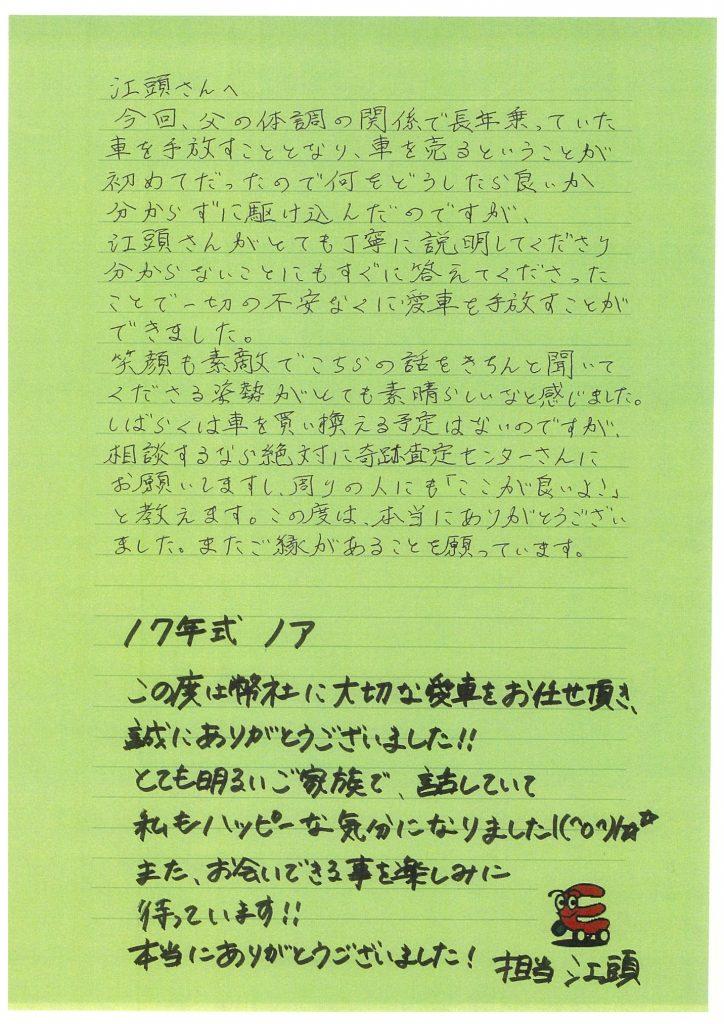 江頭さんへ
今回、父の体調の関係で長年乗っていた
車を手放すこととなり、車を売るということが
初めてだったので何をどうしたら良いか
分からずに駆け込んだのですが、
江頭さんがとても丁寧に説明してくださり
分からないことにもすぐに答えてくださった
ことで一切の不安なくに愛車を手放すことが
できました。
笑顔も素敵でこちらの話をきちんと聞いて
くださる姿勢がとても素晴らしいなと感じました。
しばらくは車を買い換える予定はないのですが、
相談するなら絶対に奇跡査定センターさんに
お願いしますし、周りの人にも「ここが良いよ!」
と教えます。この度は、本当にありがとうござい
ました。またご縁があることを願っています。
17年式 ノア
この度は幣社に大切な愛車をお任せ頂き、
誠にありがとうございました!!
とても明るいご家族で、話していて
私もハッピーな気分になりました!(^o^)/☆☆
また、お会いできる事を楽しみに
待っています!!
本当にありがとうございました! 担当 江頭